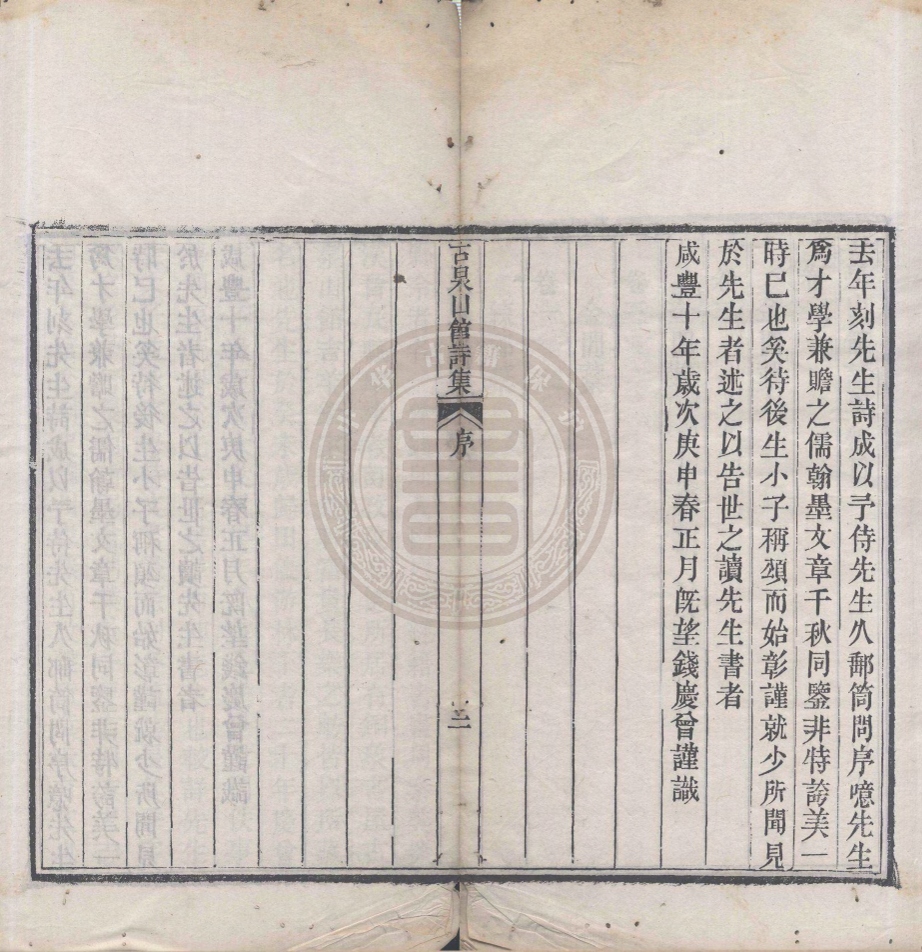 去年刻先生詩成以予侍先生久郵筒問序噫先生
爲才學兼贍之儒翰墨文章千秋同鑒非特誇美一
時已也奚待後生小子稱頌而始彰謹就少所聞見
於先生者述之以告世之讀先生書者
咸豐十年歲次庚申春正月旣望錢慶曾謹識
古泉山館詩集
序